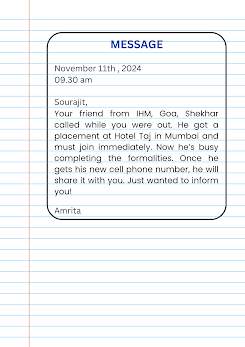 MESSAGE
November 11th , 2024
09.30 am
Sourajit,
Your friend from IHM, Goa, Shekhar
called while you were out. He got a
placement at Hotel Taj in Mumbai and
must join immediately. Now he's busy
completing the formalities. Once he
gets his new cell phone number, he will
share it with you. Just wanted to inform
you!
Amrita